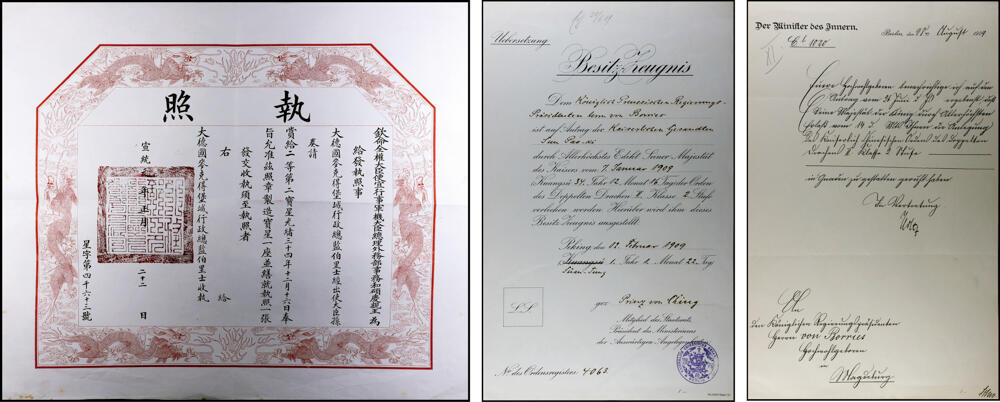 執照
欽命全權大臣便宜行事軍機大臣總理外務部事務和碩慶親王 為
給發執照事
大德國麥免得堡城行政總監伯里士經出使大臣孫
奏請
賞給二等第二寶星光緒三十四年十二月十六日奉
旨允准茲照章製造寶星一座並繕就執照一張
發交收執須至執照者
右 給
大德國麥免得堡城行政總監伯里士收執
宣統元年正月 二十二 日
星字第四千六十三號
Uebersetzung
Besitz-Zeugnis
Dem Königlich Preussischen Regierungs-
Präsidenten Herrn von Borries
ist auf Antrag der Kaiserlichen Gesandten
Sun Pao-ki
durch Allerhöchstes Edikt Seiner Majestät
des Kaisers vom 7. Januar 1909
Kuanghsü 34. Jahr 12. Monat 16. Tag der Orden
des Doppelten Drachen 2. Klasse 2. Stufe
verliehen worden. Hierüber wird ihm dieses
Besitz-Zeugnis ausgestellt.
Peking, den 12. Februar 1909
Kuanghsü 1. Jahr 1. Monat 22. Tag
Süan-Tung
L.S.
gez. Prinz von Ching
Mitglied des Staatsrats,
Präsident des Ministeriums
der Auswärtigen Angelegenheiten
No des Ordensregisters: 4063.
Der Minister des Innern.
Berlin, den 28ten August 1909
Euere Hochgeboren benachrichtige ich auf den
Antrag vom 26. Juni d. Js. ergebenst, daß
Seine Majestät der König durch Allerhöchsten
Erlaß vom 14. d. Mts. Ihnen die Anlegung
des Kaiserlich Chinesischen Ordens des Doppelten
Drachens 2. Klasse 2. Stufe
in Gnaden zu gestatten geruht haben.
In Vertretung
An
den Königlichen Regierungspräsidenten
Herrn von Borries
Hochwohlgeboren
in Magdeburg